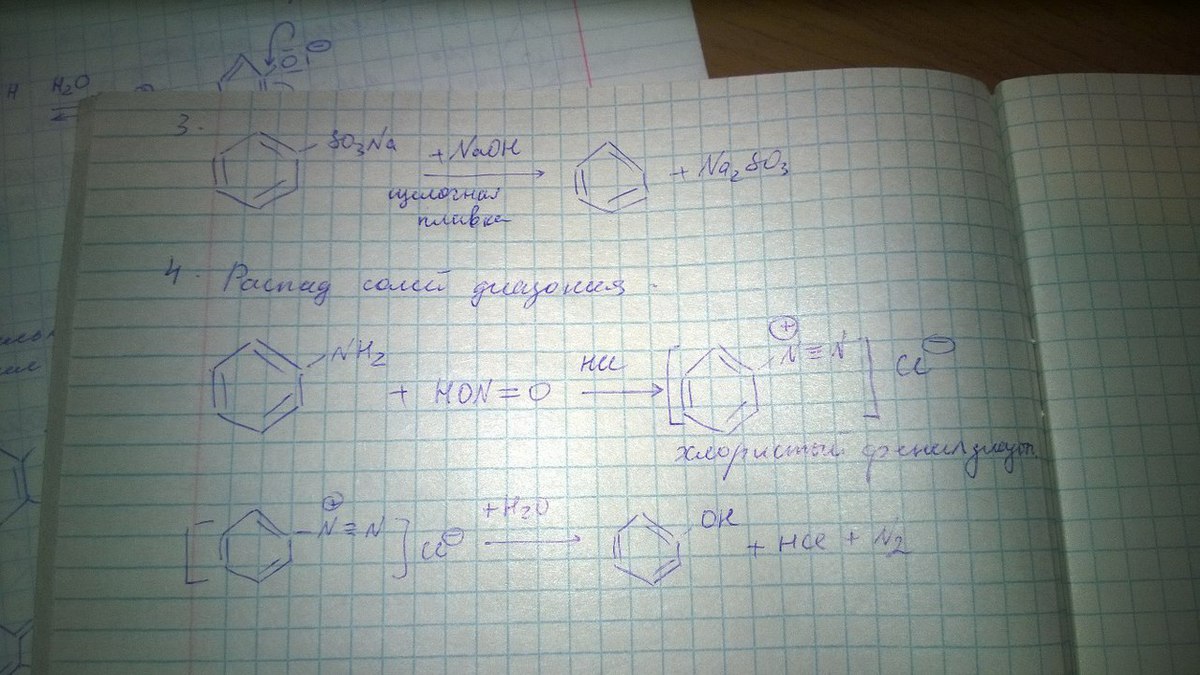 H H₂O
O ⊖
3.
SO₃Na + NaOH + Na₂SO₃
щелочная
плавка
4. Распад солей диазония.
NH₂ + HON=O HCl [ ⊕ N≡N ] Cl ⊖
хлористый фенилдиазон.
[ ⊕ N≡N ] Cl ⊖ +H₂O OH + HCl + N₂